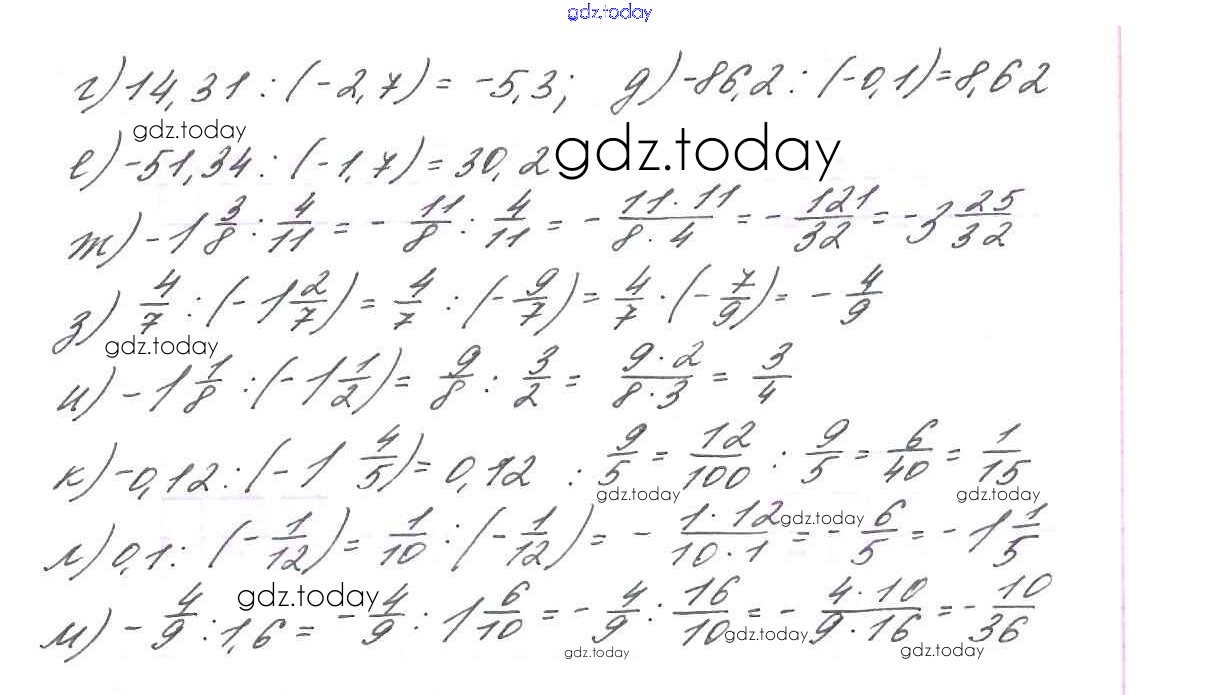 gdz.today
г) 14,31 : (-2,7) = -5,3; д) -86,2 : (-0,1) = 8,62
gdz.today
е) -51,34 : (-1,7) = 30,2 gdz.today
ж) -1 3/8 : 4/11 = - 11/8 : 4/11 = - 11·11/8·4 = - 121/32 = -3 25/32
з) 4/7 : (-1 2/7) = 4/7 : (- 9/7) = 4/7 · (- 7/9) = - 4/9
gdz.today
и) -1 1/8 : (-1 1/2) = 9/8 : 3/2 = 9·2/8·3 = 3/4
к) -0,12 : (-1 4/5) = 0,12 : 9/5 = 12/100 : 9/5 = 6/40 = 1/15
gdz.today gdz.today
л) 0,1 : (- 1/12) = 1/10 : (- 1/12) = - 1·12/10·1 = - 6/5 = -1 1/5
gdz.today
м) - 4/9 : 1,6 = - 4/9 : 1 6/10 = - 4/9 : 16/10 = - 4·10/9·16 = - 10/36
gdz.today
gdz.today gdz.today gdz.today